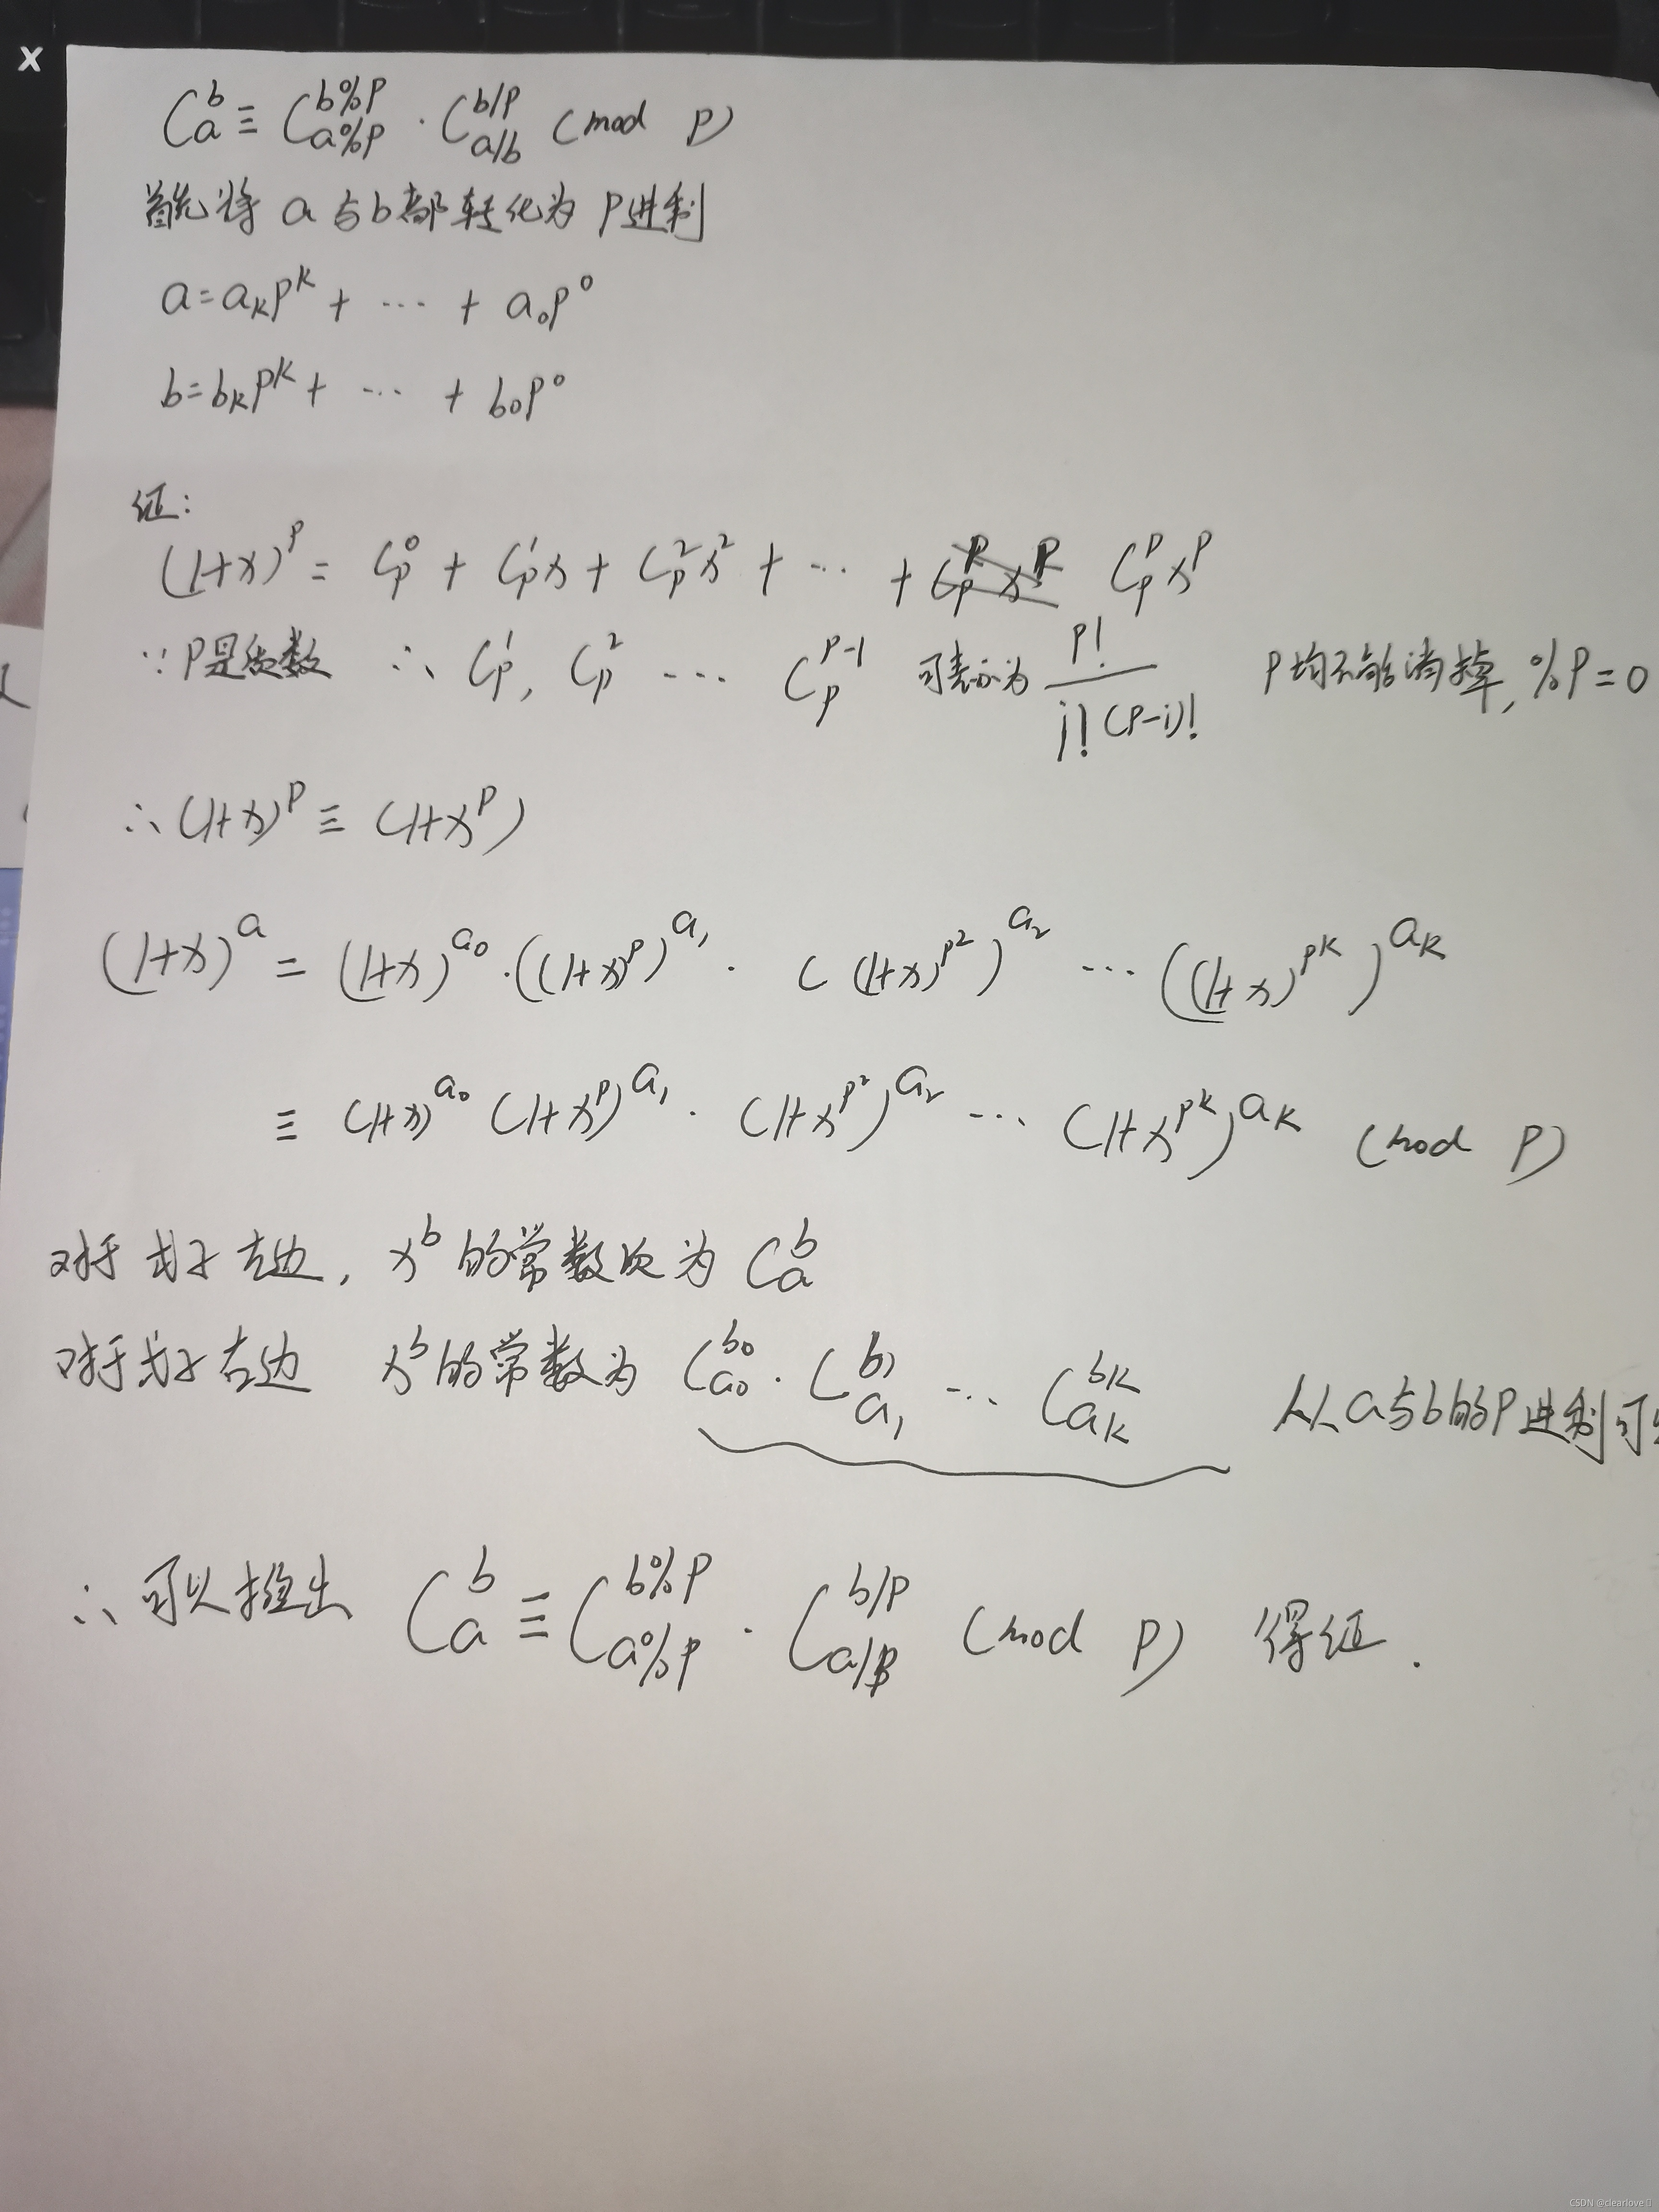 x
C_a^b ≡ C_{a%p}^{b%p} · C_{a/b}^{b/p} (mod p)
首先将 a与b都转化为 P进制
a=a_k p^k + … + a_0 p^0
b=b_k p^k + … + b_0 p^0
证:
(1+x)^p = C_p^0 + C_p^1 x + C_p^2 x^2 + … + C_p^p x^p
∵ P是质数 ∴ C_p^1, C_p^2 … C_p^{p-1} 可表示为 p!/i!(p-i)! P均不能消掉, %P=0
∴ (1+x)^p ≡ (1+x^p)
(1+x)^a = (1+x)^{a_0} · ((1+x)^p)^{a_1} · ((1+x)^{p^2})^{a_2} … ((1+x)^{p^k})^{a_k}
≡ (1+x)^{a_0} (1+x^p)^{a_1} · (1+x^{p^2})^{a_2} … (1+x^{p^k})^{a_k} (mod p)
对于式子左边, x^b 的常数次为 C_a^b
对于式子右边 x^b的常数为 C_{a_0}^{b_0} · C_{a_1}^{b_1} … C_{a_k}^{b_k} 从a与b的P进制可
∴ 可以推出 C_a^b ≡ C_{a%p}^{b%p} · C_{a/p}^{b/p} (mod p) 得证.
CSDN @clearlove